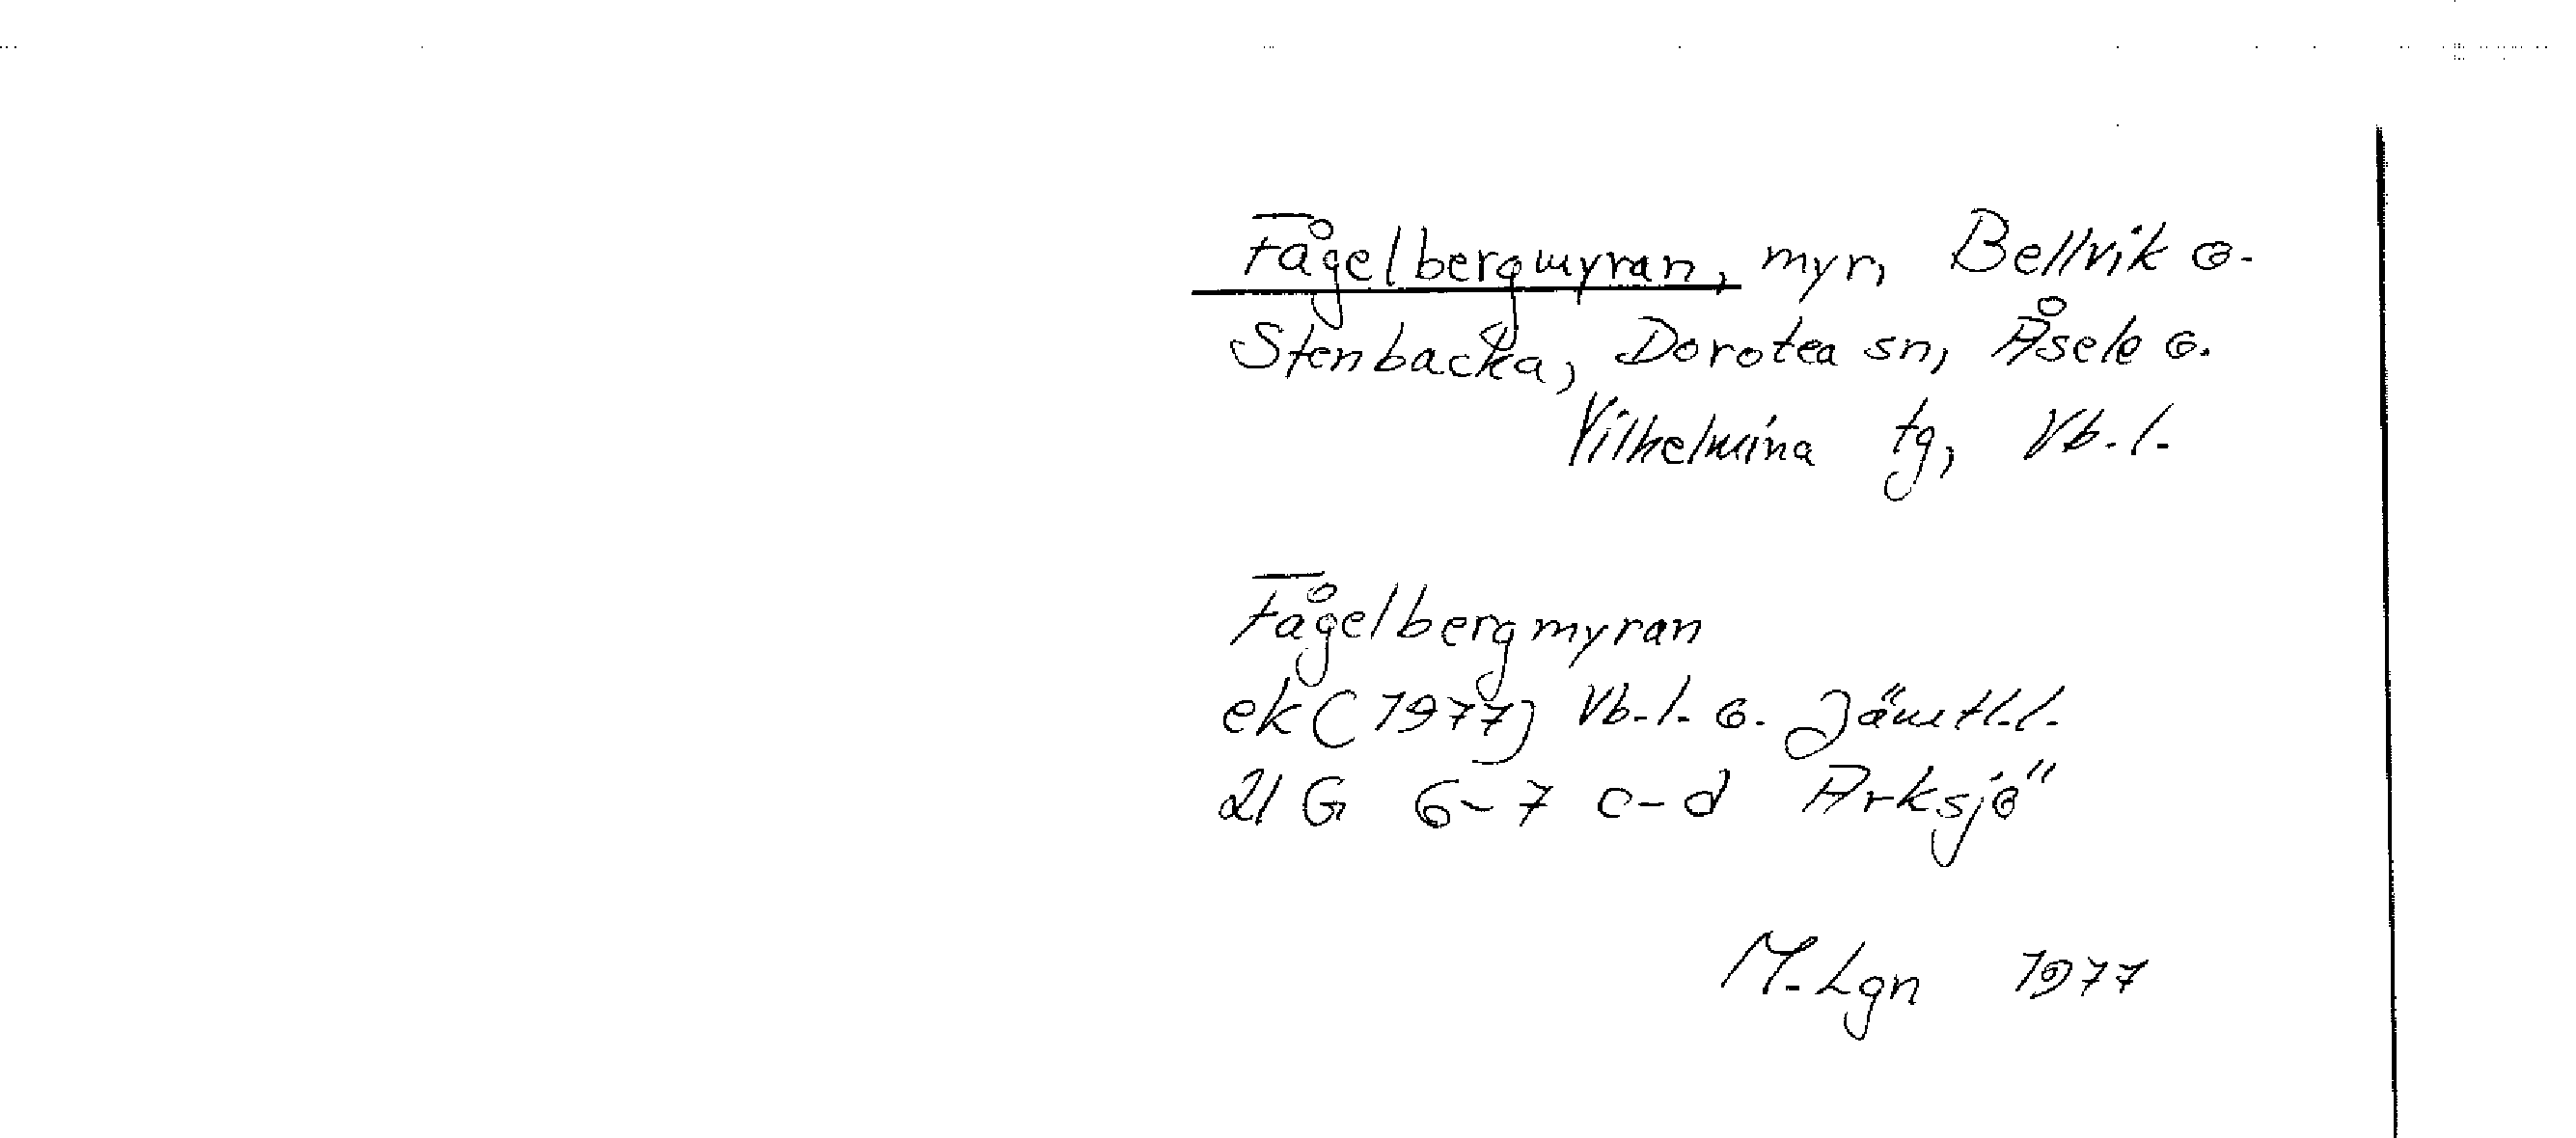 Fågelbergmyran, myr, Bellvik o.
Stenbacka, Dorotea sn, Åsele o.
Vilhelmina tg, Vb. l.
Fågelbergmyran
ek (1977) Vb. l. o. Jämtl. l.
21 G 6-7 c-d Arksjö
M. Lgn 1977